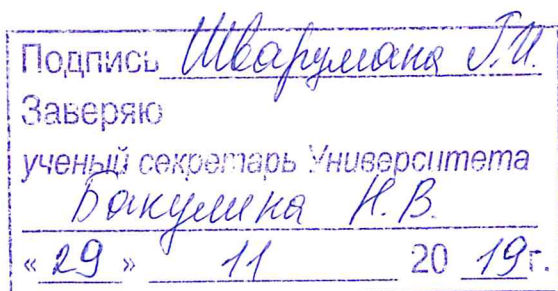 Подпись Шварцмана Г.И.
Заверяю
ученый секретарь Университета
Бакулина Н.В.
«29» 11 2019г.